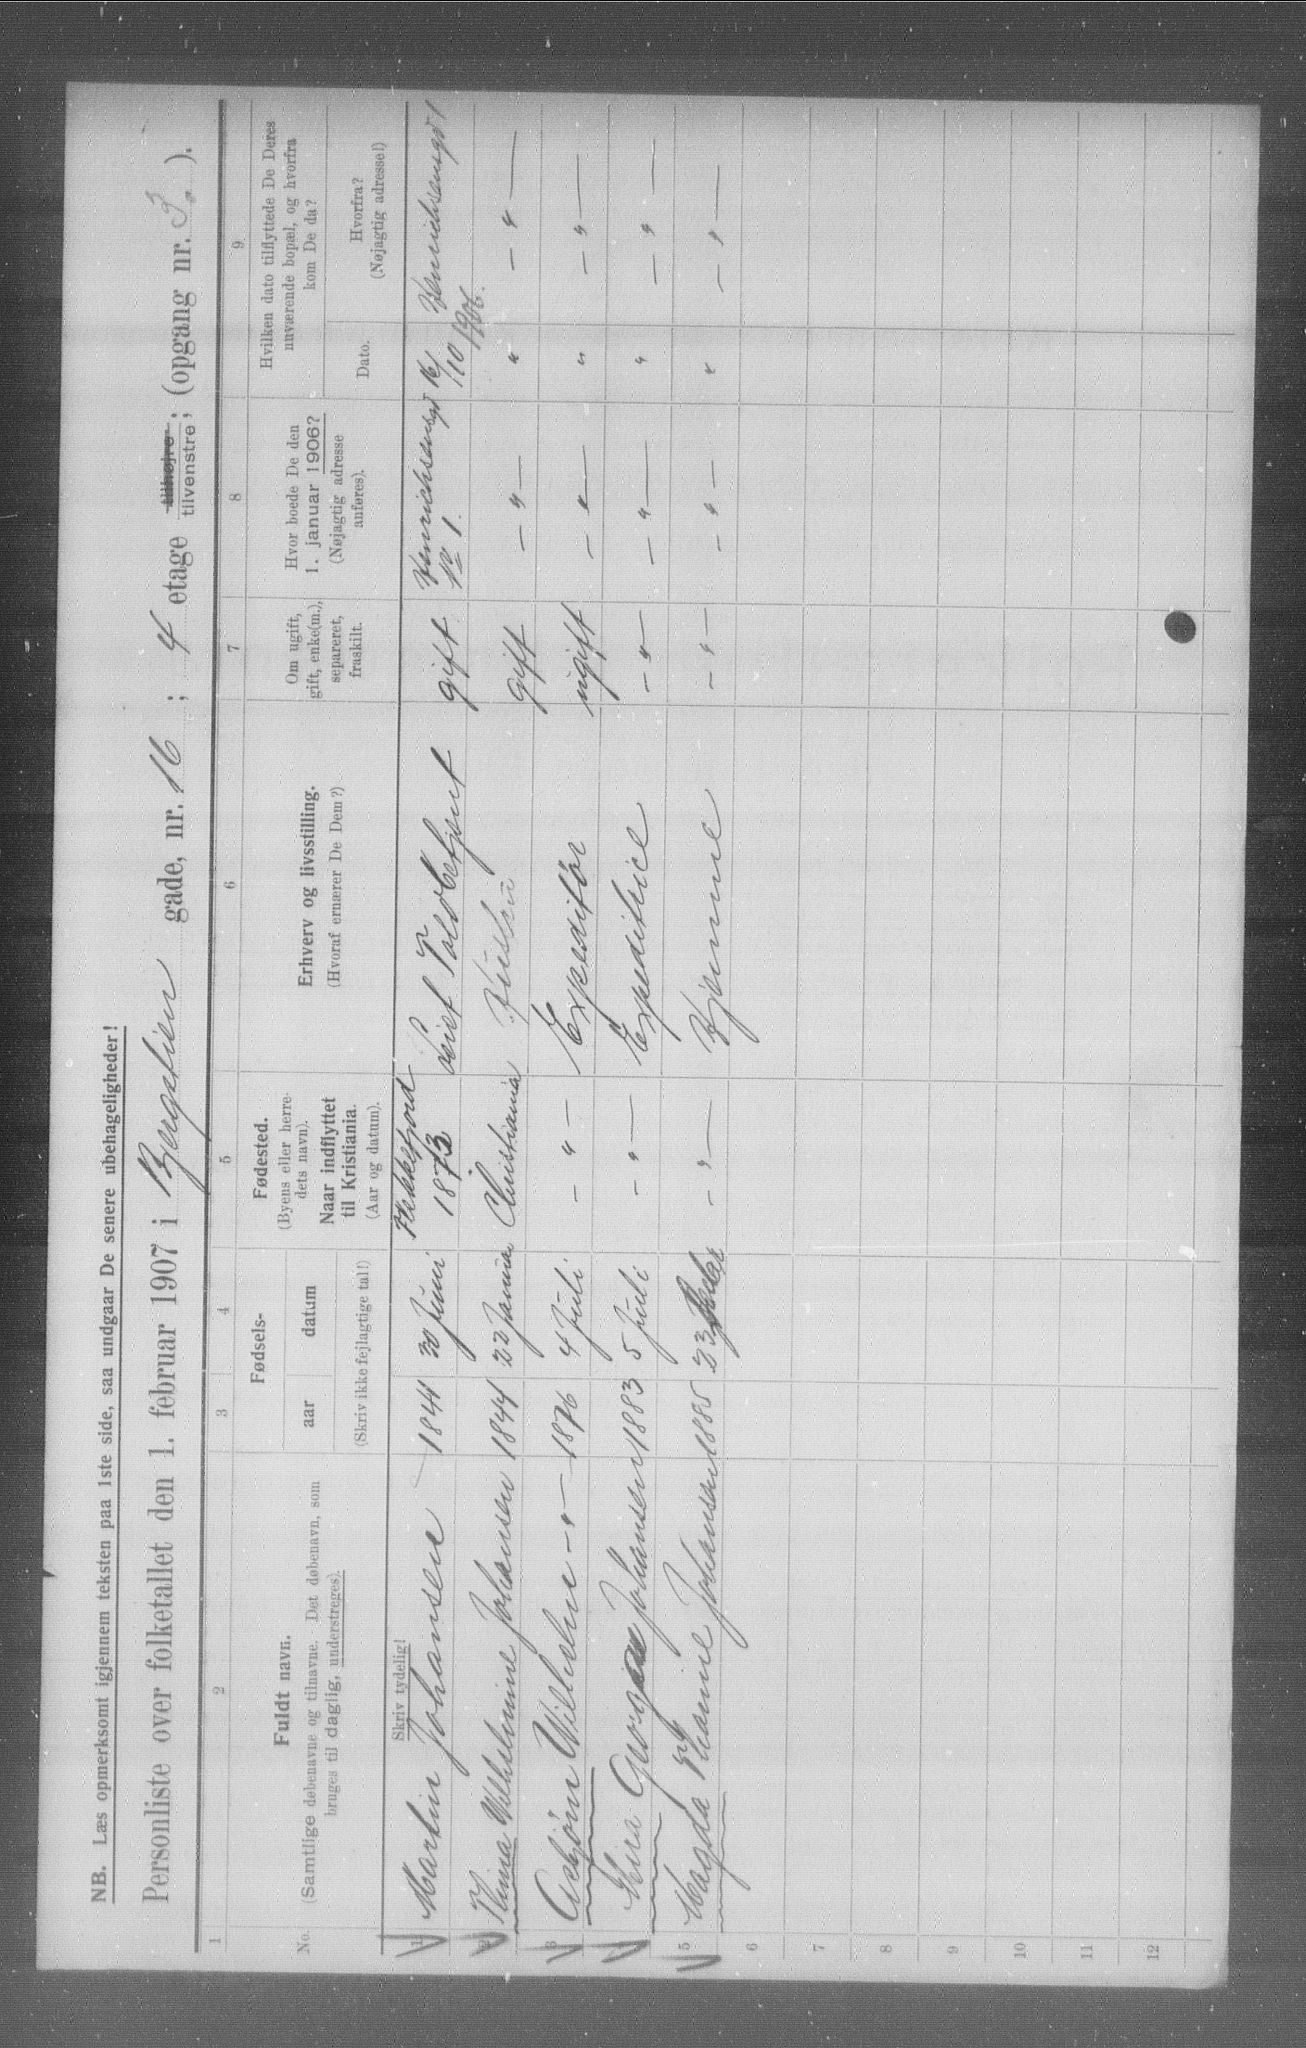 NB. Læs opmerksomt igjennem teksten paa 1ste side, saa undgaar De senere ubehageligheder!
Personliste over folketallet den 1. februar 1907 i Bjergstien gade, nr. 16 ; 4 etage tilhøjre tilvenstre ; (opgang nr. 3. ).
1 2 3 4 5 6 7 8 9
No.
Fuldt navn.
(Samtlige døbenavne og tilnavne. Det døbenavn, som
bruges til daglig, understreges).
Fødsels-
aar datum
(Skriv ikke fejlagtige tal!)
Fødested.
(Byens eller herre-
dets navn).
Naar indflyttet
til Kristiania.
(Aar og datum).
Erhverv og livsstilling.
(Hvoraf ernærer De Dem?)
Om ugift,
gift, enke(m.),
separeret,
fraskilt.
Hvor boede De den
1. januar 1906?
(Nøjagtig adresse
anføres).
Hvilken dato tilflyttede De Deres
nuværende bopæl, og hvorfra
kom De da?
Dato.
Hvorfra?
(Nøjagtig adresse!)
Skriv tydelig!
1 Martin Johansen 1841 30 Juni Flekkefjord 1873 Toldbetjent gift No 1. 16/10 1906.
2 Wilhelmine Johansen 1844 22 Januar Christiania Hustru gift — " — " — " —
3 Asbjørn Wilhelm — " — 1876 4 Juli — " — Expeditør ugift — " — " — " —
4 Georgine Johansen 1883 5 Juli — " — Expeditrice — " — — " — " — " —
5 Magda Johansen 1885 23 — " — Hjemme — " — — " — " — " —
6
7
8
9
10
11
12